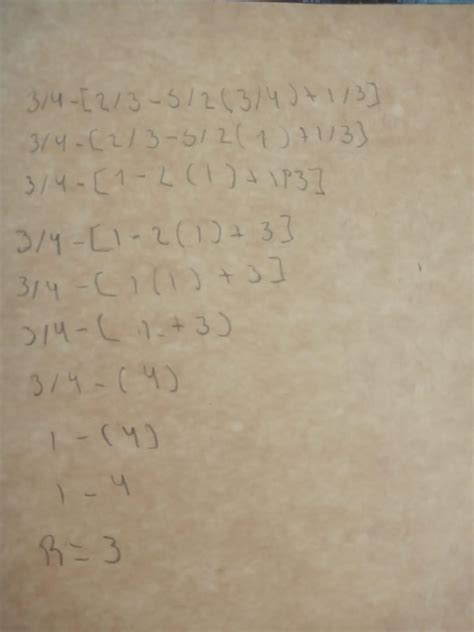 3/4-[2/3-5/2(3/4)+1/3]
3/4-[2/3-5/2(1)+1/3]
3/4-[1-2(1)+1P3]
3/4-[1-2(1)+3]
3/4-[1(1)+3]
3/4-(1+3)
3/4-(4)
1-(4)
1-4
R=3